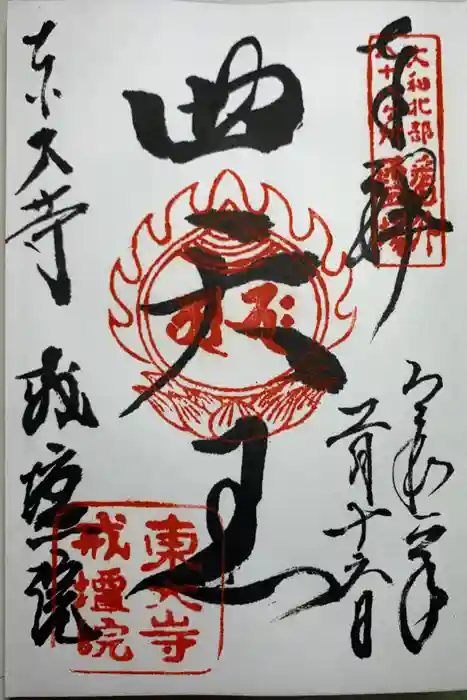 奉拝
大和北部
八十八ヶ所
霊場
令和
月十六日
四天王
東大寺 戒壇院
東大寺
戒壇院